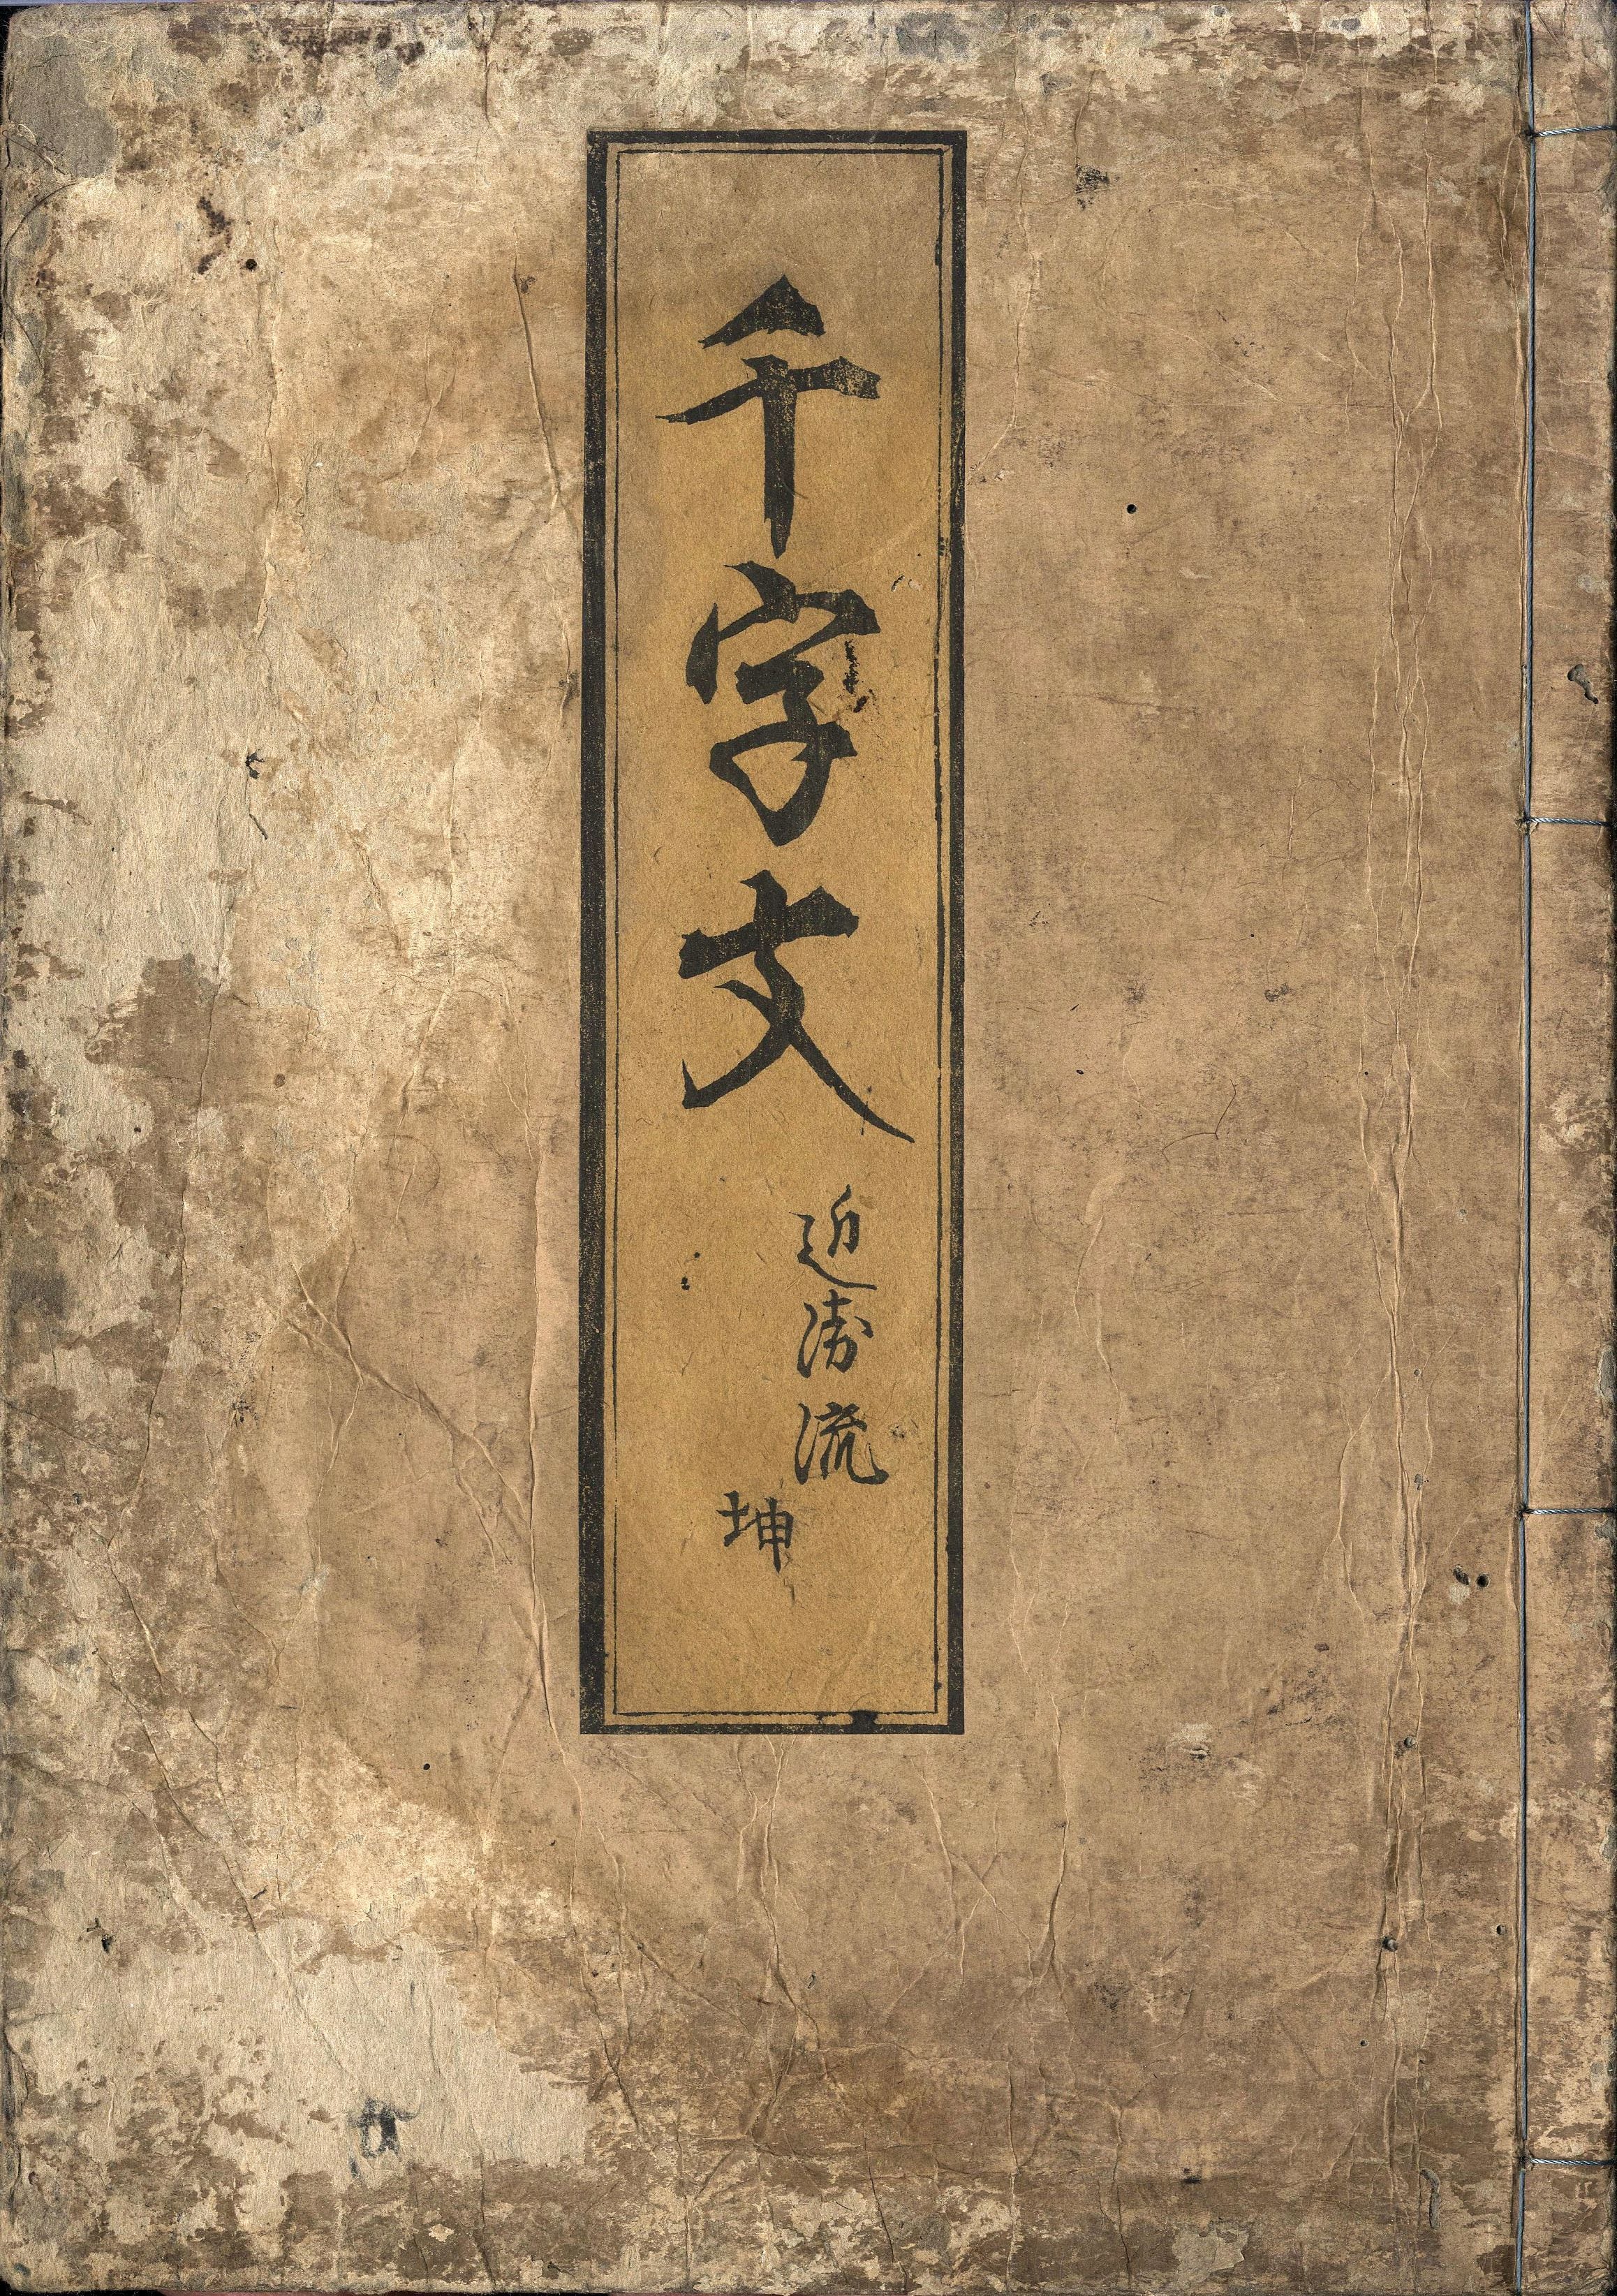 千字文
近衛流
坤